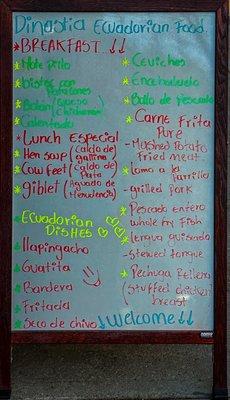 Dinastia Ecuadorian Food
*BREAKFAST ↓↓
*Mote Pillo
*Bistec con
Patacones
*Bolon (Queso
Chicharron
*Calentado
*Lunch Especial
*Hen soup (Caldo de
gallina)
*Cow feet (Caldo de
Pata)
*Giblet (Aguado de
Menudencia)
*Ecuadorian
Dishes
*llapingacho
*Guatita
*Bandera
*Fritada
*Seco de chivo
*Ceviches
*Encebollado
*Bollo de pescado
*Carne Frita
Pure
-Mashed Potato
Fried meat
*Lomo a la
Parrilla
-grilled pork
*Pescado entero
whole fry fish
*Lengua guisada
-Stewed tongue
*Pechuga Rellena
(Stuffed chicken
breast
↓Welcome↓↓